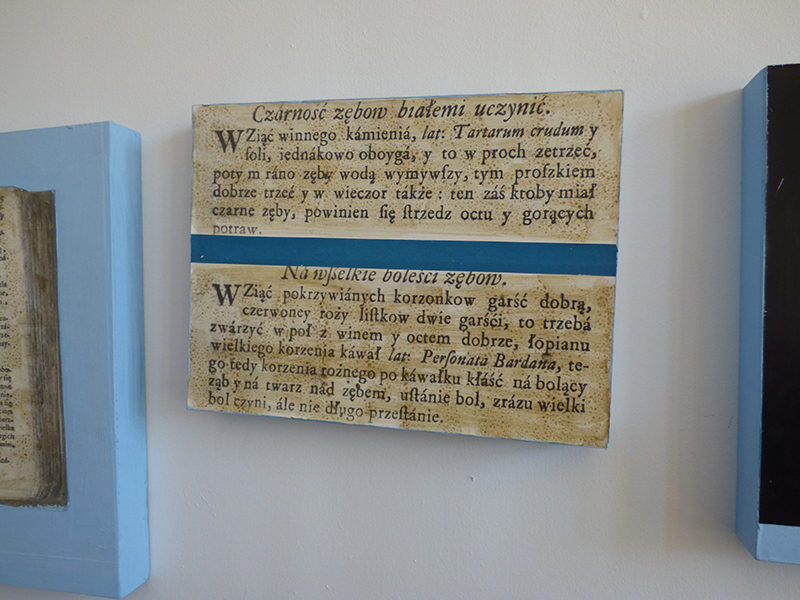 Czárność zębow białemi uczynić.
WZiąć winnego kámieniá, lat: Tartarum crudum y
ſoli, iednákowo oboygá, y to w proch zetrzeć,
potym ráno zęby wodą wymywſzy, tym proſzkiem
dobrze trzeć y w wieczor tákże : ten záś ktoby miał
czarne zęby, powinien ſię ſtrzedz octu y gorących
potraw.
Ná wſzelkie boleści zębow.
WZiąć pokrzywiánych korzonkow garść dobrą,
czerwoney roży liſtkow dwie garści, to trzebá
zwárzyć w poł z winem y octem dobrze, łopianu
wielkiego korzenia káwał lat: Perſonata Bardana, te-
go tedy korzenia rożnego po káwałku kłáść ná bolący
ząb y ná twarz nád zębem, uſtánie bol, zrázu wielki
bol czyni, ále nie długo przeſtánie.